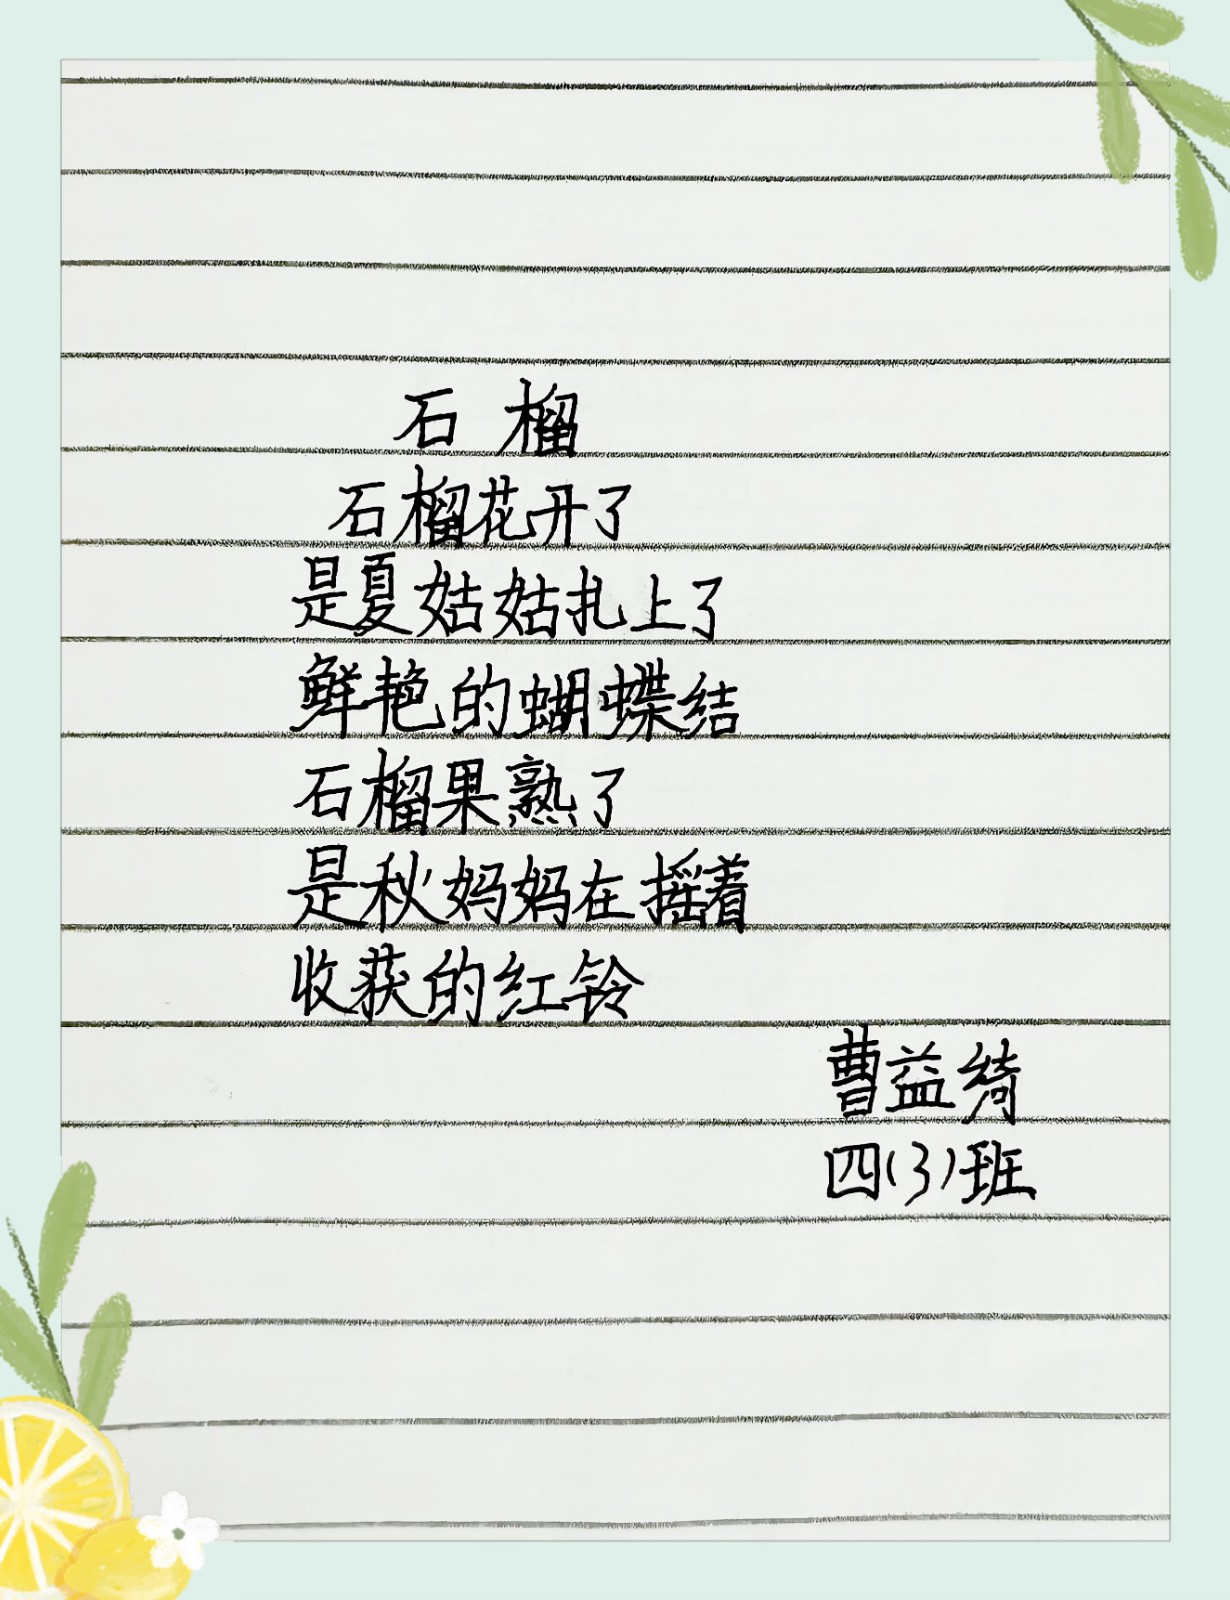 石 榴
石榴花开了
是夏姑姑扎上了
鲜艳的蝴蝶结
石榴果熟了
是秋妈妈在摇着
收获的红铃
曹益绮
四(3)班